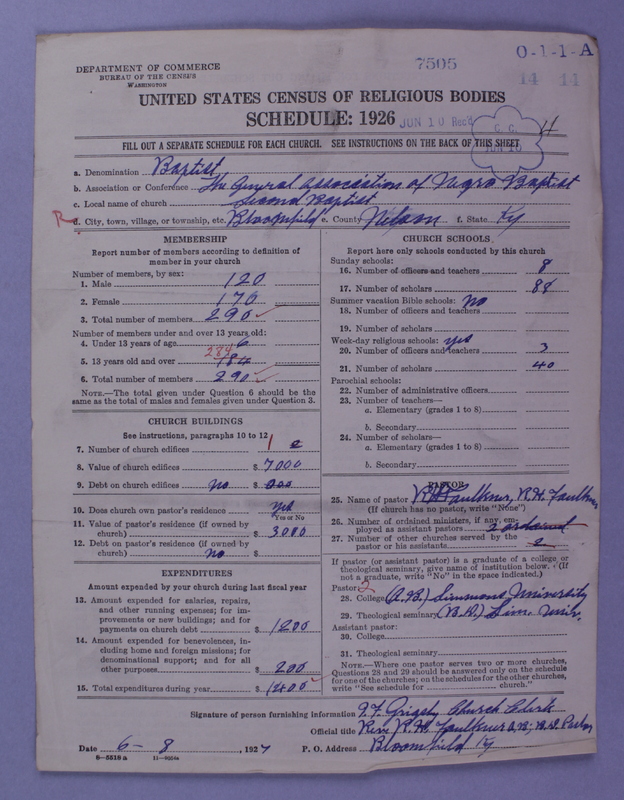 7505
O-1-1-A
14 14
DEPARTMENT OF COMMERCE
BUREAU OF THE CENSUS
WASHINGTON
UNITED STATES CENSUS OF RELIGIOUS BODIES
SCHEDULE: 1926
JUN 10 Rec'd
G. C.
JUN 10
4
FILL OUT A SEPARATE SCHEDULE FOR EACH CHURCH. SEE INSTRUCTIONS ON THE BACK OF THIS SHEET
a. Denomination Baptist
b. Association or Conference The General Association of Negro Baptist
c. Local name of church Second Baptist
R d. City, town, village, or township, etc. Bloomfield e. County Nelson f. State Ky
MEMBERSHIP
Report number of members according to definition of
member in your church
Number of members, by sex:
1. Male 120
2. Female 170
3. Total number of members 290 ✓
Number of members under and over 13 years old:
4. Under 13 years of age 6
284
5. 13 years old and over 184
6. Total number of members 290 ✓
NOTE.—The total given under Question 6 should be the
same as the total of males and females given under Question 3.
CHURCH BUILDINGS
See instructions, paragraphs 10 to 12
7. Number of church edifices 1 2
8. Value of church edifices $ 7000
9. Debt on church edifices no $ 000
10. Does church own pastor's residence yes
Yes or No
11. Value of pastor's residence (if owned by
church) $ 3000
12. Debt on pastor's residence (if owned by
church) no $
EXPENDITURES
Amount expended by your church during last fiscal year
13. Amount expended for salaries, repairs,
and other running expenses; for im-
provements or new buildings; and for
payments on church debt $ 1200
14. Amount expended for benevolences, in-
cluding home and foreign missions; for
denominational support; and for all
other purposes $ 200
15. Total expenditures during year $ 1400 ✓
CHURCH SCHOOLS
Report here only schools conducted by this church
Sunday schools:
16. Number of officers and teachers 8
17. Number of scholars 88
Summer vacation Bible schools: no
18. Number of officers and teachers
19. Number of scholars
Week-day religious schools: yes
20. Number of officers and teachers 3
21. Number of scholars 40
Parochial schools:
22. Number of administrative officers
23. Number of teachers—
a. Elementary (grades 1 to 8)
b. Secondary
24. Number of scholars—
a. Elementary (grades 1 to 8)
b. Secondary
PASTOR
25. Name of pastor R.H. Faulkner, R.H. Faulkner
(If church has no pastor, write "None")
26. Number of ordained ministers, if any, em-
ployed as assistant pastors 2 ordained
27. Number of other churches served by the
pastor or his assistants 2
If pastor (or assistant pastor) is a graduate of a college or
theological seminary, give name of institution below. (If
not a graduate, write "No" in the space indicated.)
Pastor: 2
28. College (A.B.) Simmons University
29. Theological seminary (B.D.) Sim. Univ.
Assistant pastor:
30. College
31. Theological seminary
NOTE.—Where one pastor serves two or more churches,
Questions 28 and 29 should be answered only on the schedule
for one of the churches; on the schedules for the other churches,
write "See schedule for church."
Signature of person furnishing information T. F. Grigsby Church Clerk
Official title Rev. R. H. Faulkner A.B., B.D. Pastor
Date 6 - 8, 1927 P. O. Address Bloomfield Ky
8-5518 a